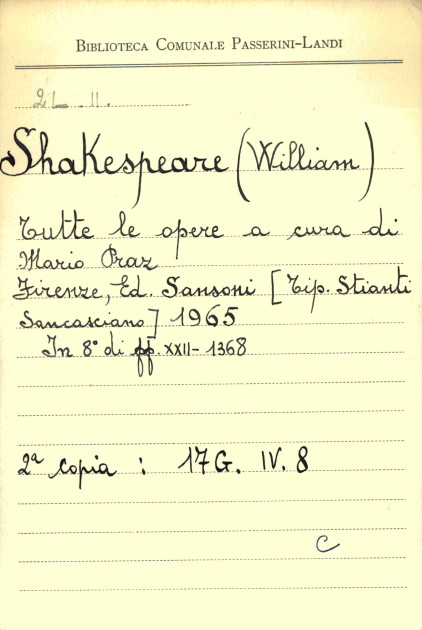 BIBLIOTECA COMUNALE PASSERINI-LANDI
2L . II.
Shakespeare (William)
Tutte le opere a cura di
Mario Praz
Firenze, Ed. Sansoni [Tip. Stianti
Sancasciano] 1965
In 8° di pp. XXII-1368
2ª copia : 17G. IV. 8
C